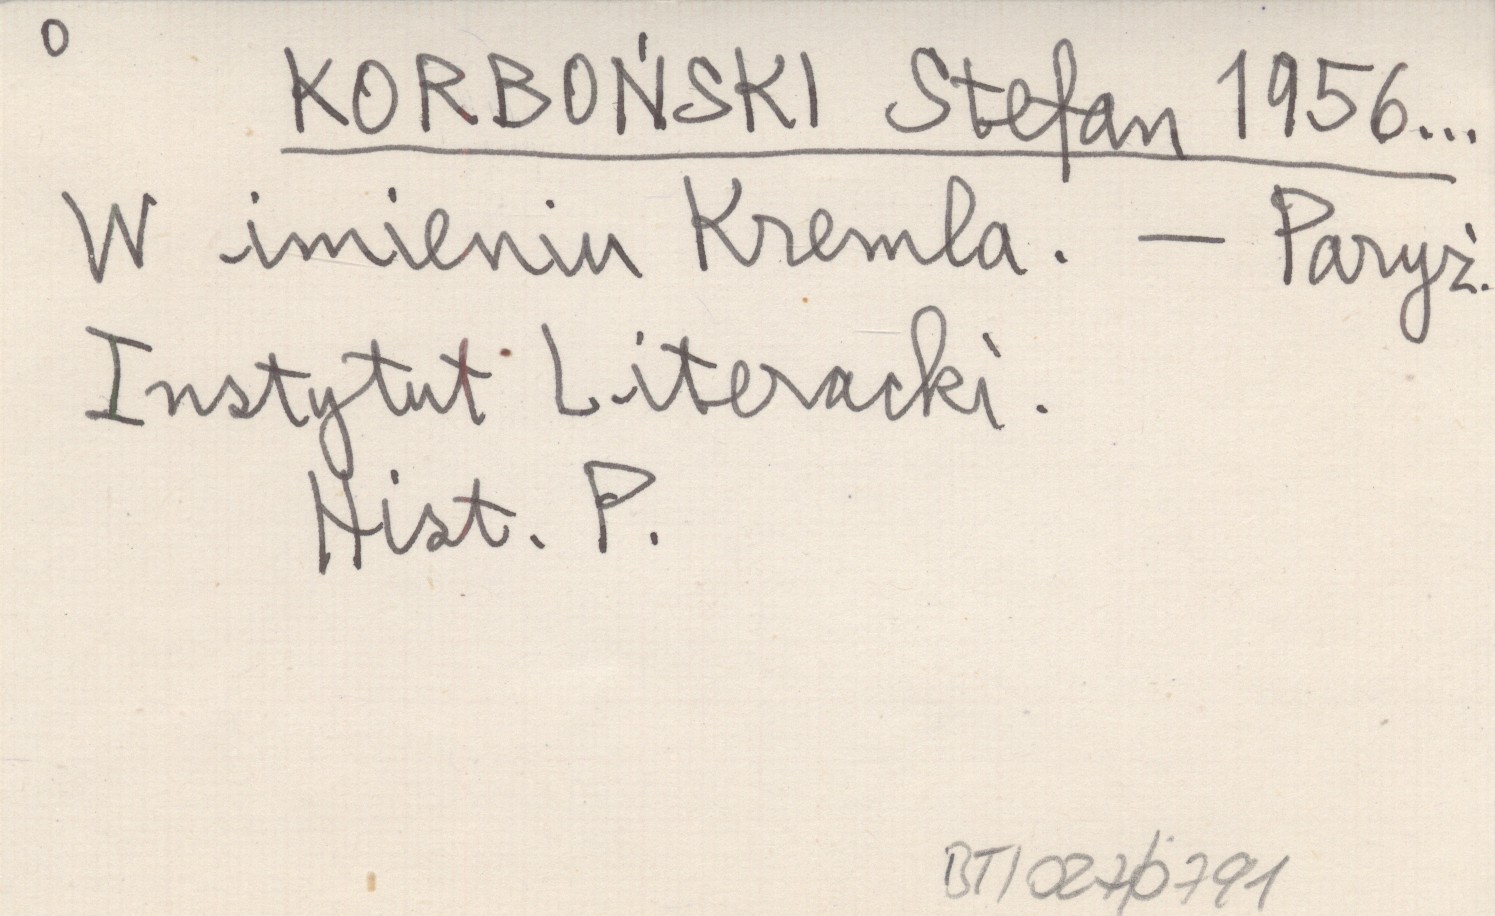 o
KORBOŃSKI Stefan 1956...
W imieniu Kremla. — Paryż.
Instytut Literacki.
Hist. P.
BT/027/0791